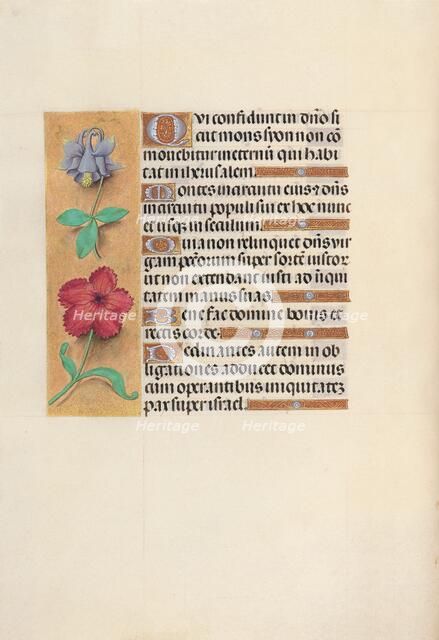 Qui confidunt in dño si
cut mons syon non cõ
movebitur in eternũ qui habi
tat in iherusalem.
Montes in circuitu eius & dñs
in circuitu populi sui ex hoc nunc
et usque in seculum.
Quia non relinquet dñs vir
gam pctõrum super sortẽ iustor
ut non extendant iusti ad iniqui
tatem manus suas.
Bene fac domine bonis et
rectis corde.
Declinantes autem in ob
ligationes adducet dominus
cum operantibus iniquitatẽ
pax super israel.
Heritage
Heritage
Heritage
Heritage
Heritage
Heritage
Heritage
Heritage